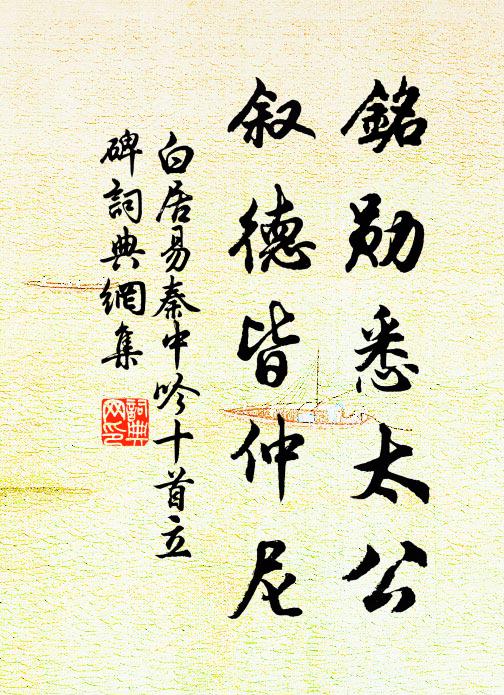 銘勋悉太公
叙德皆仲尼
白居易秦中吟十首立
碑詞典網集
詞典网印